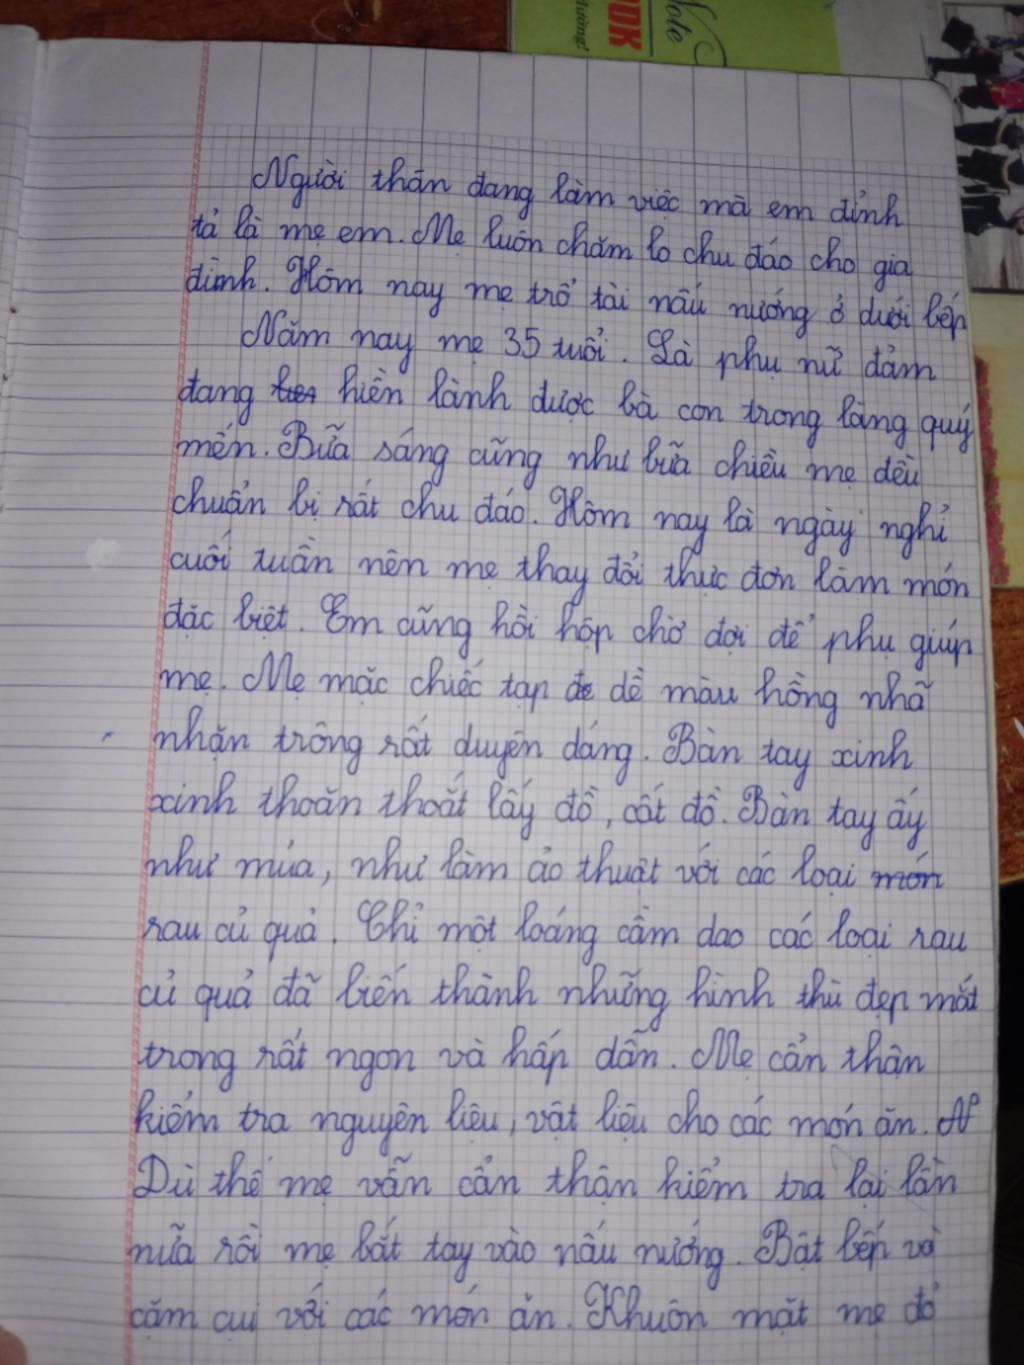 Note
DDK
Hường!
Người thân đang làm việc mà em định
tả là mẹ em. Mẹ luôn chăm lo chu đáo cho gia
đình. Hôm nay mẹ trổ tài nấu nướng ở dưới bếp
Năm nay mẹ 35 tuổi. Là phụ nữ đảm
đang hiền lành được bà con trong làng quý
mến. Bữa sáng cũng như bữa chiều mẹ đều
chuẩn bị rất chu đáo. Hôm nay là ngày nghỉ
cuối tuần nên mẹ thay đổi thực đơn làm món
đặc biệt. Em cũng hồi hộp chờ đợi để phụ giúp
mẹ. Mẹ mặc chiếc tạp dề màu hồng nhã
nhặn trông rất duyên dáng. Bàn tay xinh
xinh thoăn thoắt lấy đồ, cắt đồ. Bàn tay ấy
như múa, như làm ảo thuật với các loại món
rau củ quả. Chỉ một loáng cầm dao các loại rau
củ quả đã biến thành những hình thù đẹp mắt
trong rất ngon và hấp dẫn. Mẹ cẩn thận
kiểm tra nguyên liệu, vật liệu cho các món ăn.
Dù thế mẹ vẫn cẩn thận kiểm tra lại lần
nữa rồi mẹ bắt tay vào nấu nướng. Bật bếp và
cặm cụi với các món ăn. Khuôn mặt mẹ đỏ